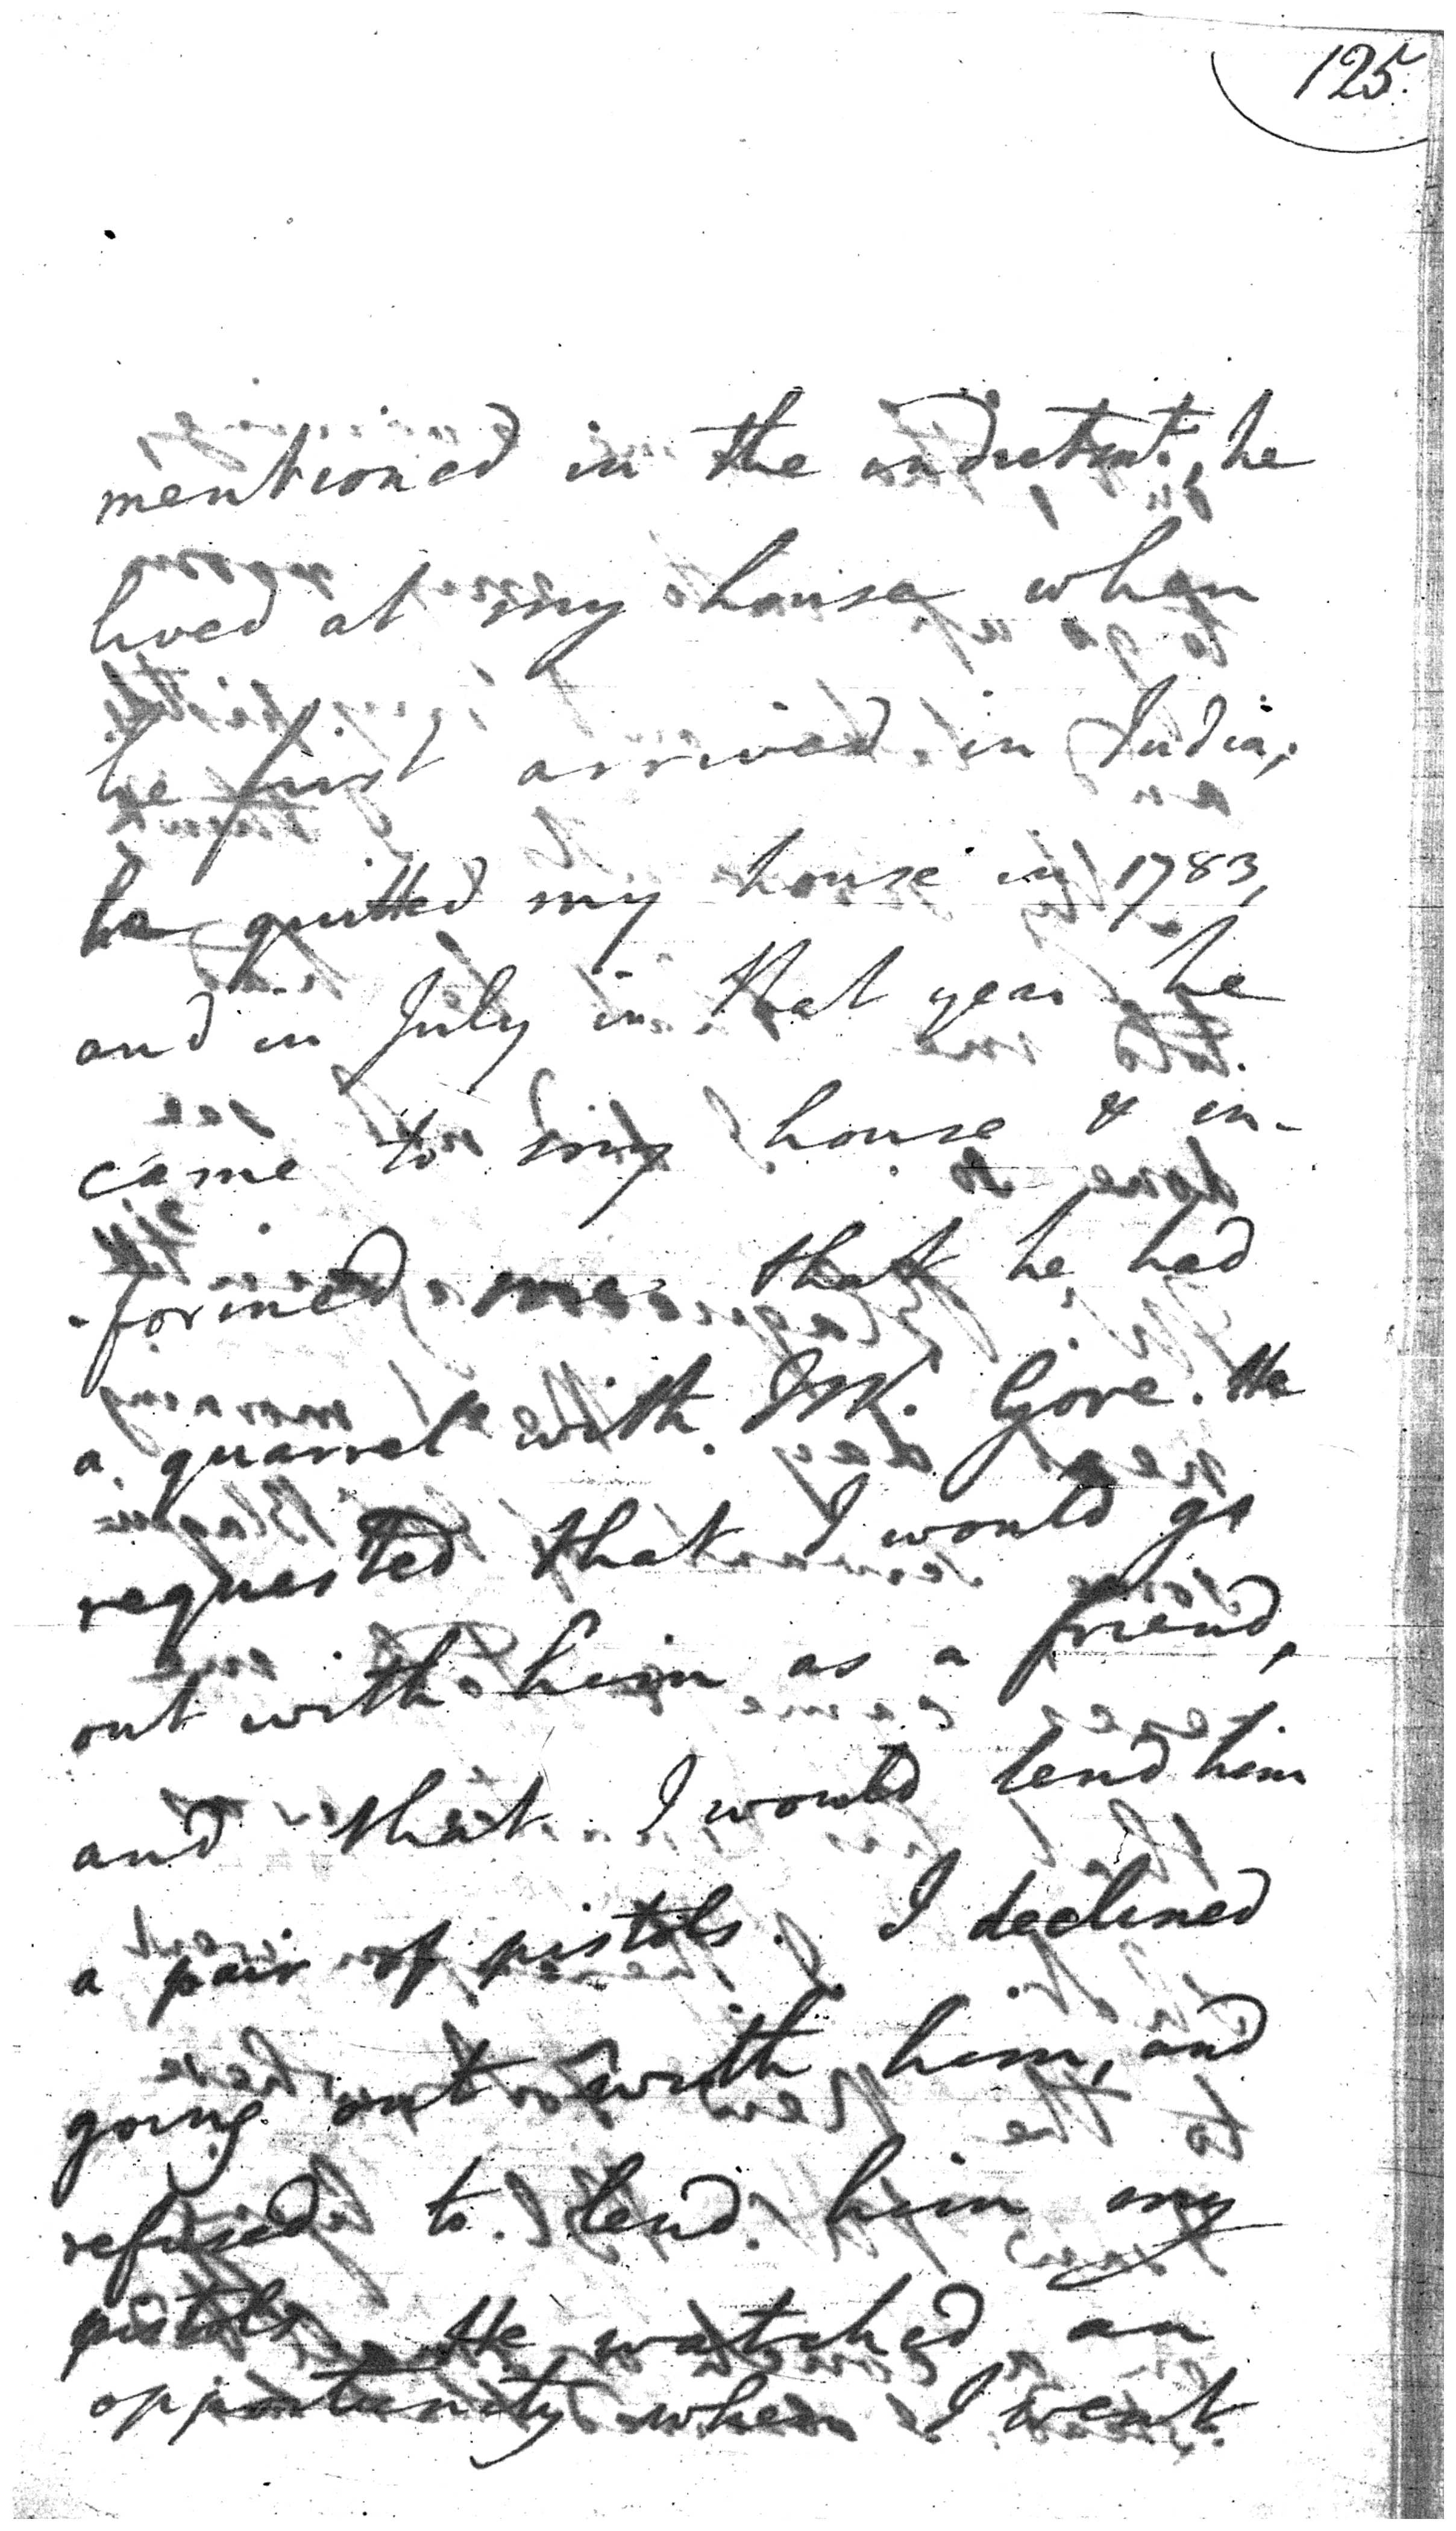 125.
mentioned in the indictmt., he
lived at my house when
he first arrived in India;
he quitted my house in 1783,
and in July in that year he
came to my house & in-
-formed me that he had
a quarrel with Mr. Gore. He
requested that I would go
out with him as a friend,
and that I would lend him
a pair of pistols. I declined
going out with him, and
refused to lend him my
pistols. He watched an
opportunity when I went